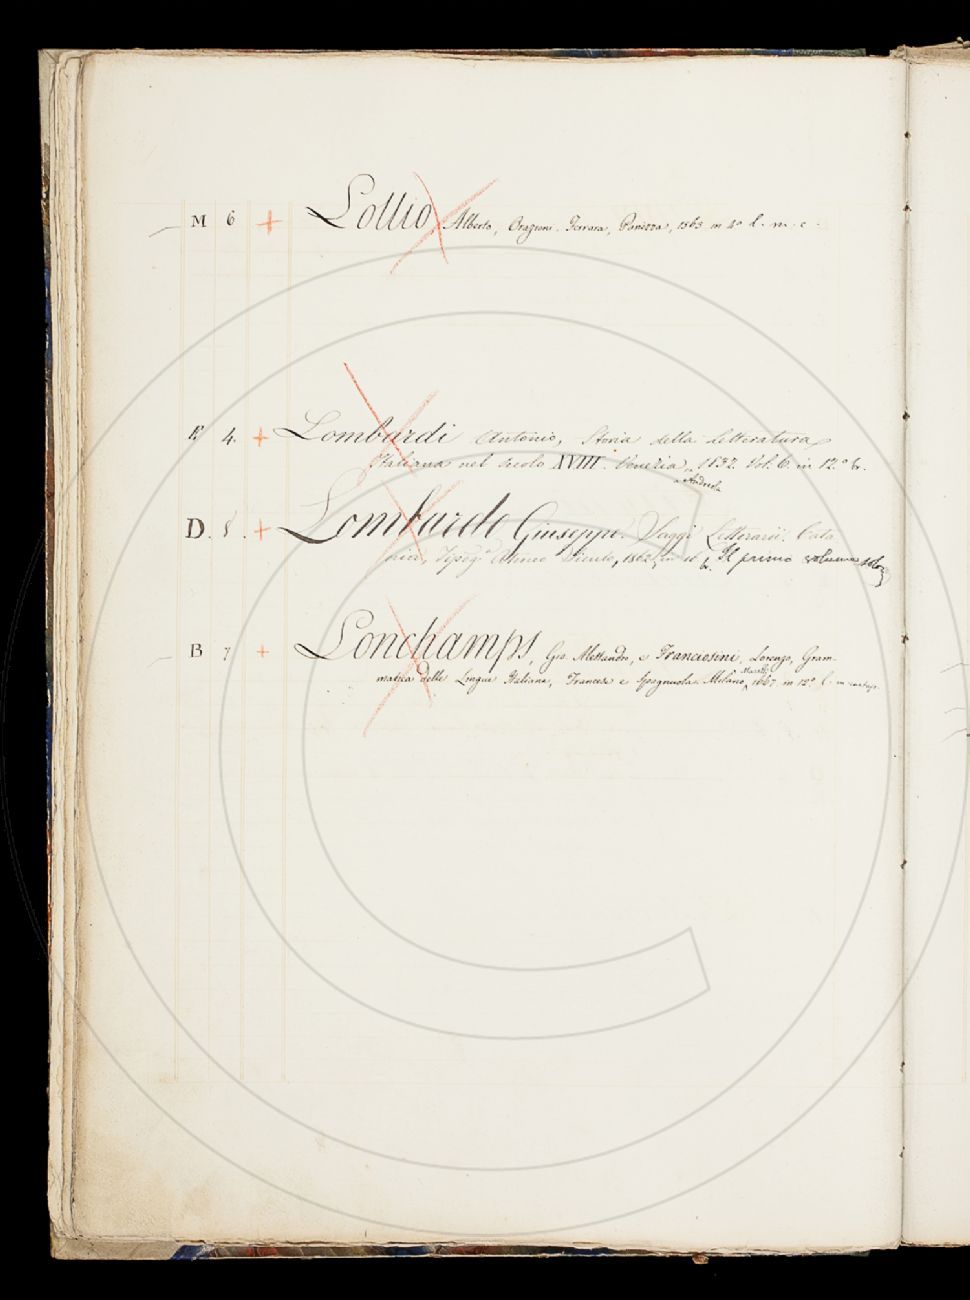 M 6 + Lollio, Alberto, Orazioni. Ferrara, Panizza, 1563 in 4o l. m. c.
F. 4. + Lombardi Antonio, Storia della Letteratura
Italiana nel secolo XVIII. Venezia, 1832. Vol. 6. in 12.o b.
Andreola
D. 8. + Lombardo Giuseppe. Saggi Letterarii. Cata
nia, Tipog.a Ateneo 1862, in b. Il primo volume solo
B 7 + Lonchamps, Gio. Alessandro, e Franciosini, Lorenzo, Gram-
matica delle Lingue Italiana, Francese e Spagnuola. Milano, 1667 in 12o l. in cartap.